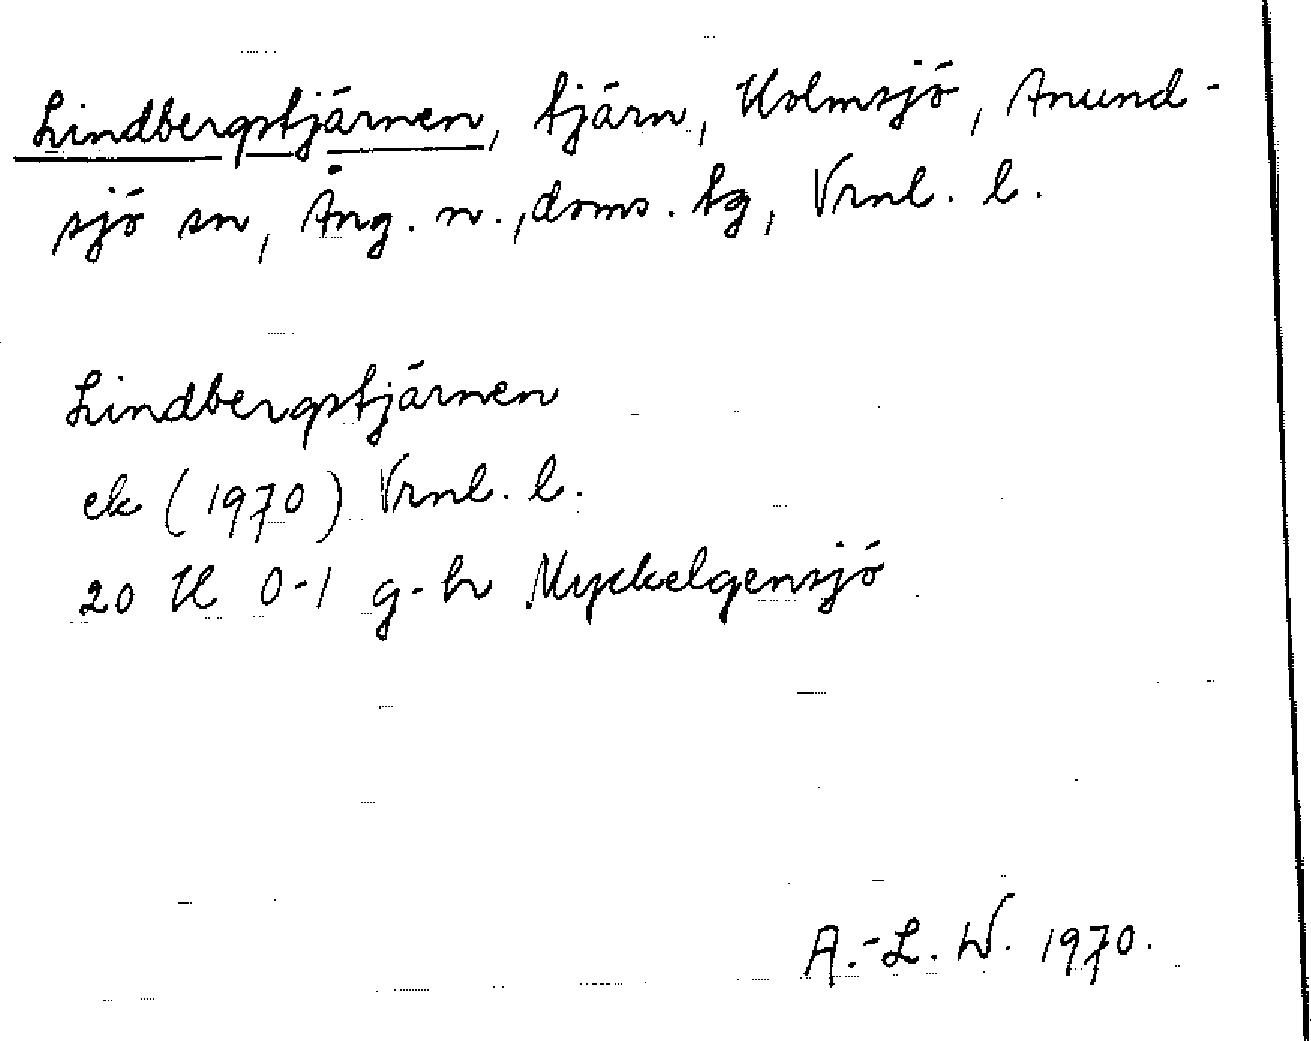 Lindbergstjärnen, tjärn, Holmsjö, Anund-
sjö sn, Ång. n., doms. tg, Vrnl. l.
Lindbergstjärnen
ek (1970) Vrnl. l.
20 H 0-1 g-h Myckelgensjö
A.-L. W. 1970.